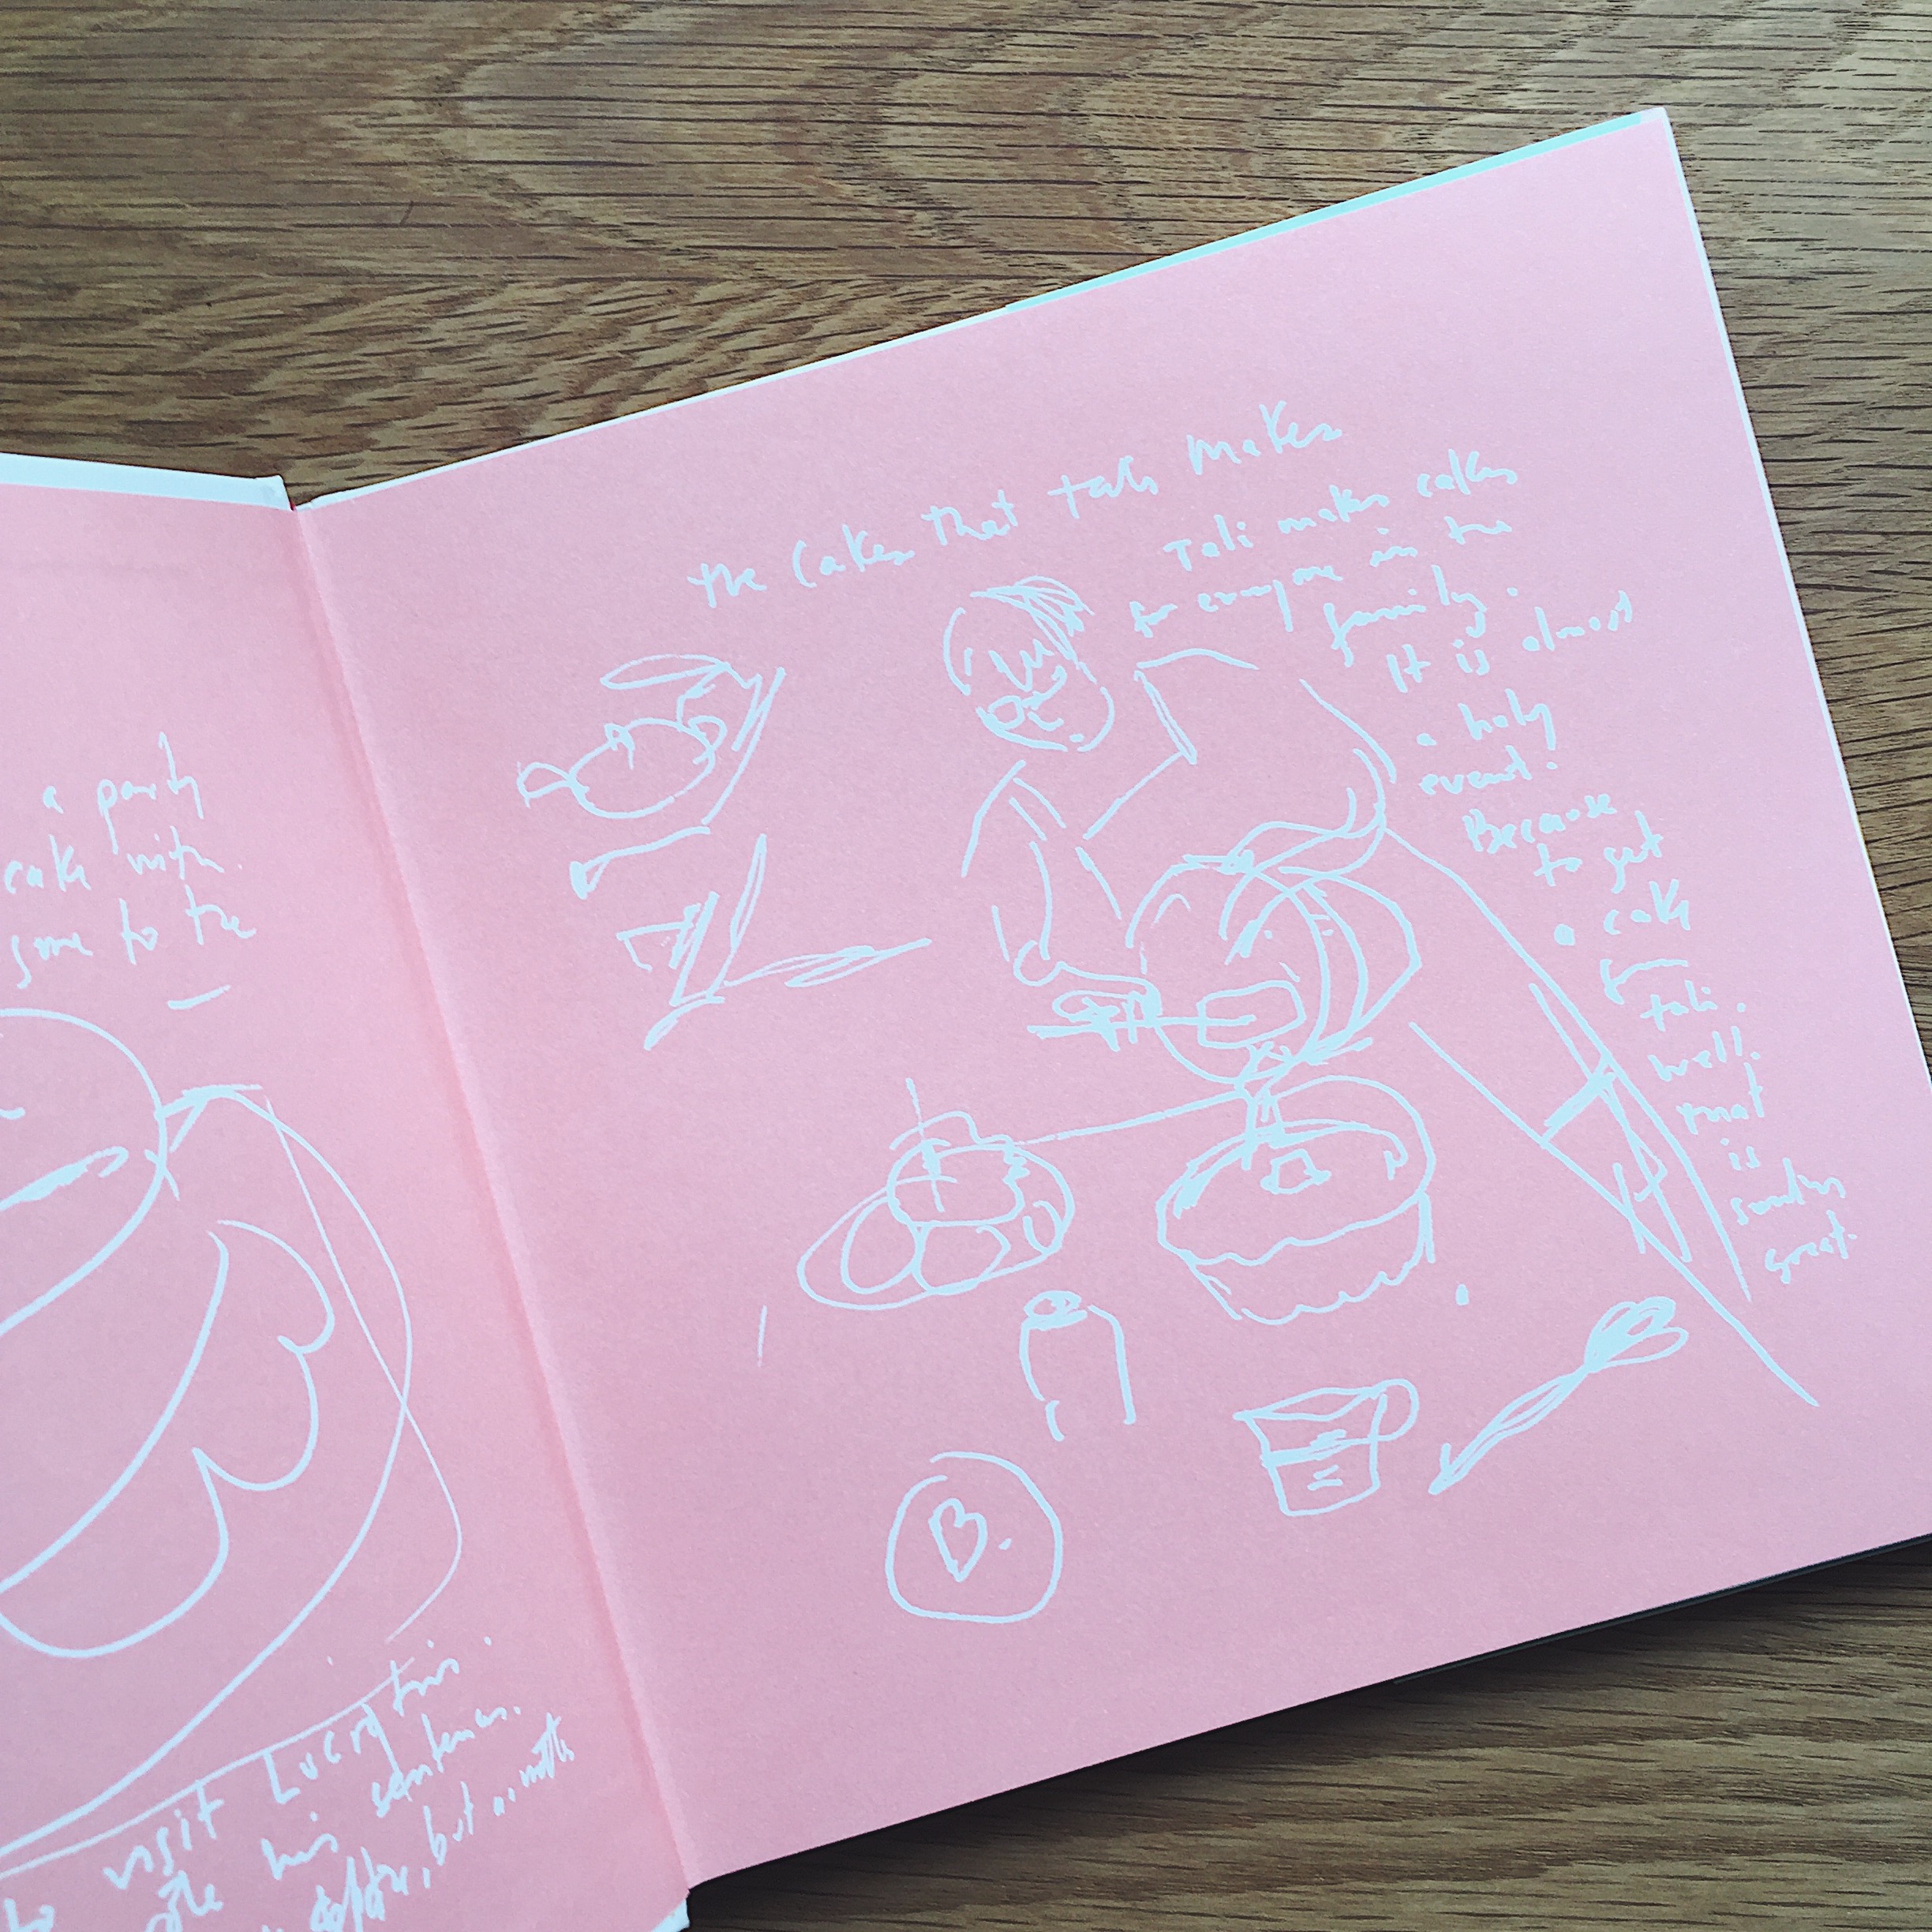 a party
cake with
some to the
to visit Lucretius.
his sentences.
before, but
the cakes that tali makes
Tali makes cakes
for everyone in the
family.
It is almost
a holy
event.
Because
to get
a cake
from
tali.
well.
that
is
something
great.
B.